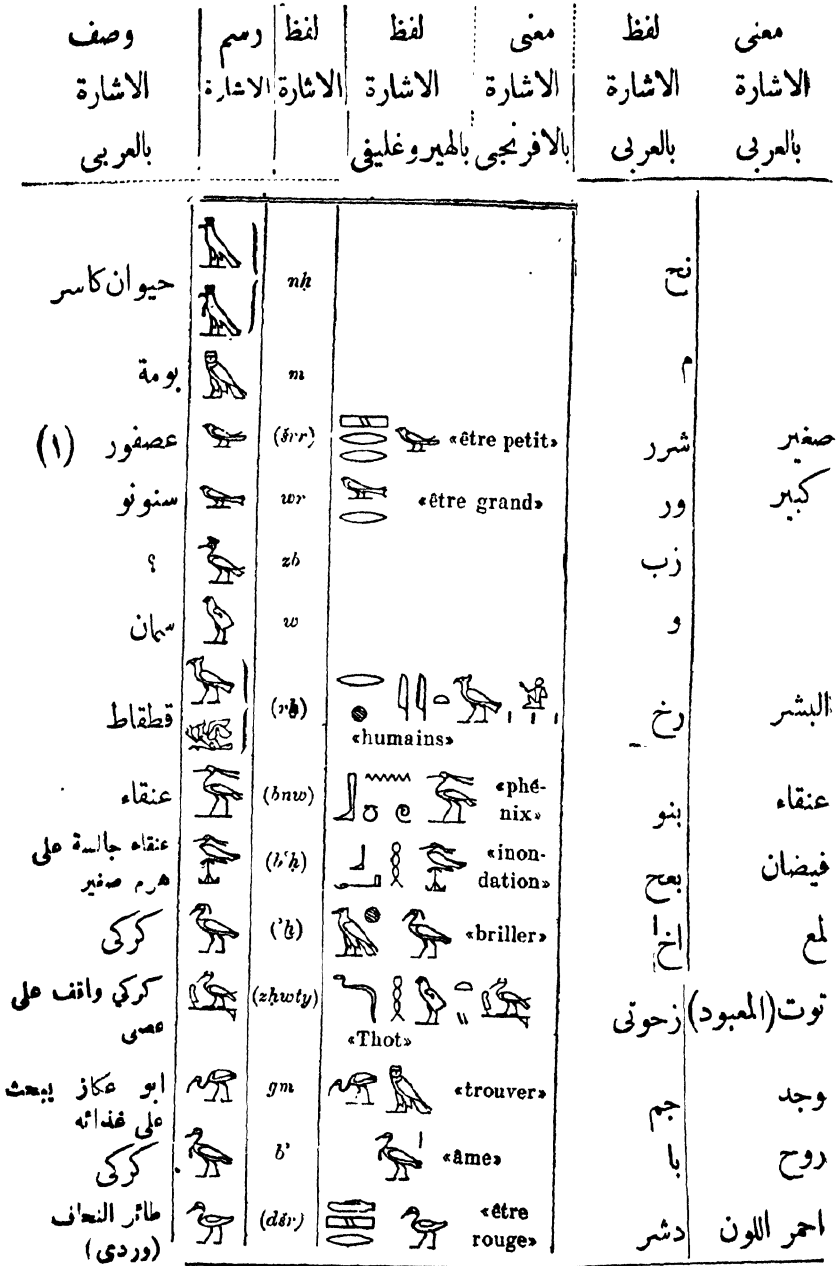 معنى الاشارة بالعربى | لفظ الاشارة بالعربى | معنى الاشارة بالافرنجى | لفظ الاشارة بالهيروغليفى | لفظ الاشارة | رسم الاشارة | وصف الاشارة بالعربى
نح | nḥ | حيوان كاسر
م | m | بومة
صغير | شرر | «être petit» | (šrr) | عصفور (١)
كبير | ور | «être grand» | wr | سنونو
زب | zb | ؟
و | w | سمان
البشر | رخ | «humains» | قطقاط
عنقاء | بنو | «phé-nix» | (bnw) | عنقاء
فيضان | بعح | «inon-dation» | (bʿḥ) | عنقاء جالسة على هرم صغير
لمع | اخ | «briller» | (ʾḫ) | كركى
توت (المعبود) | زحوتى | «Thot» | (zḥwty) | كركي واقف على عصى
وجد | جم | «trouver» | gm | ابو عكاز يبحث على غذائه
روح | با | «âme» | bʾ | كركى
احمر اللون | دشر | «être rouge» | (dšr) | طائر النحاف (وردى)